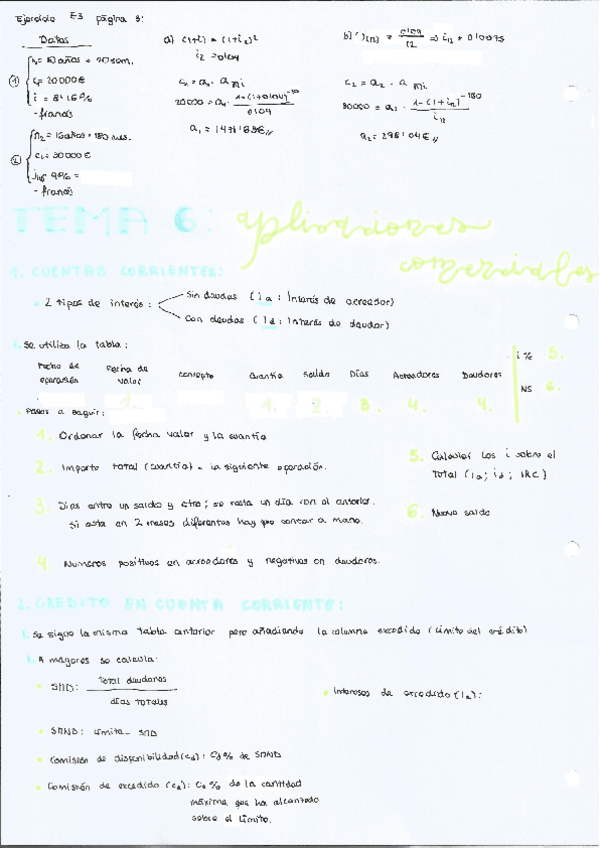 Ejercicio E3 página 3:
Datos
a) (1+i) = (1+i2)²
i2 = 0'04
- francés
C1 = a1 · a n i
a1 = 1471'83€
b) J(12) = 0'09 / 12 => i12 = 0'0075
C2 = a2 · a n i
30000 = a2 · 1-(1+i12)^-180 / i12
a2 = 298'04€
C2 = 30000€
- francés
TEMA 6: aplicaciones comerciales
1. CUENTAS CORRIENTES:
2 tipos de interés:
Sin deudas (ia: Interés de acreedor)
Con deudas (id: Interés de deudor)
Se utiliza la tabla:
Fecha de operación
Fecha de valor
Concepto
Cuantía
Saldo
Días
Acreedores
Deudores
i % 5.
NS 6.
1. 1. 2. 3. 4. 4.
Pasos a seguir:
1. Ordenar la fecha valor y la cuantía
2. Importe total (cuantía) - la siguiente operación.
3. Días entre un saldo y otro; se resta un día con el anterior.
Si esta en 2 meses diferentes hay que contar a mano.
4. Numeros positivos en acreedores y negativos en deudores.
5. Calcular los i sobre el
total (ia; id; IRC)
6. Nuevo saldo
2. CREDITO EN CUENTA CORRIENTE:
Se sigue la misma tabla anterior pero añadiendo la columna excedido (Limite del crédito)
A mayores se calcula:
SMD: Total deudores
días totales
Intereses de excedido (Ie):
SMND: Límite - SMD
Comisión de disponibilidad (cd): Cd % de SMND
Comisión de excedido (ce): Ce % de la cantidad
máxima que ha alcanzado
sobre el límite.